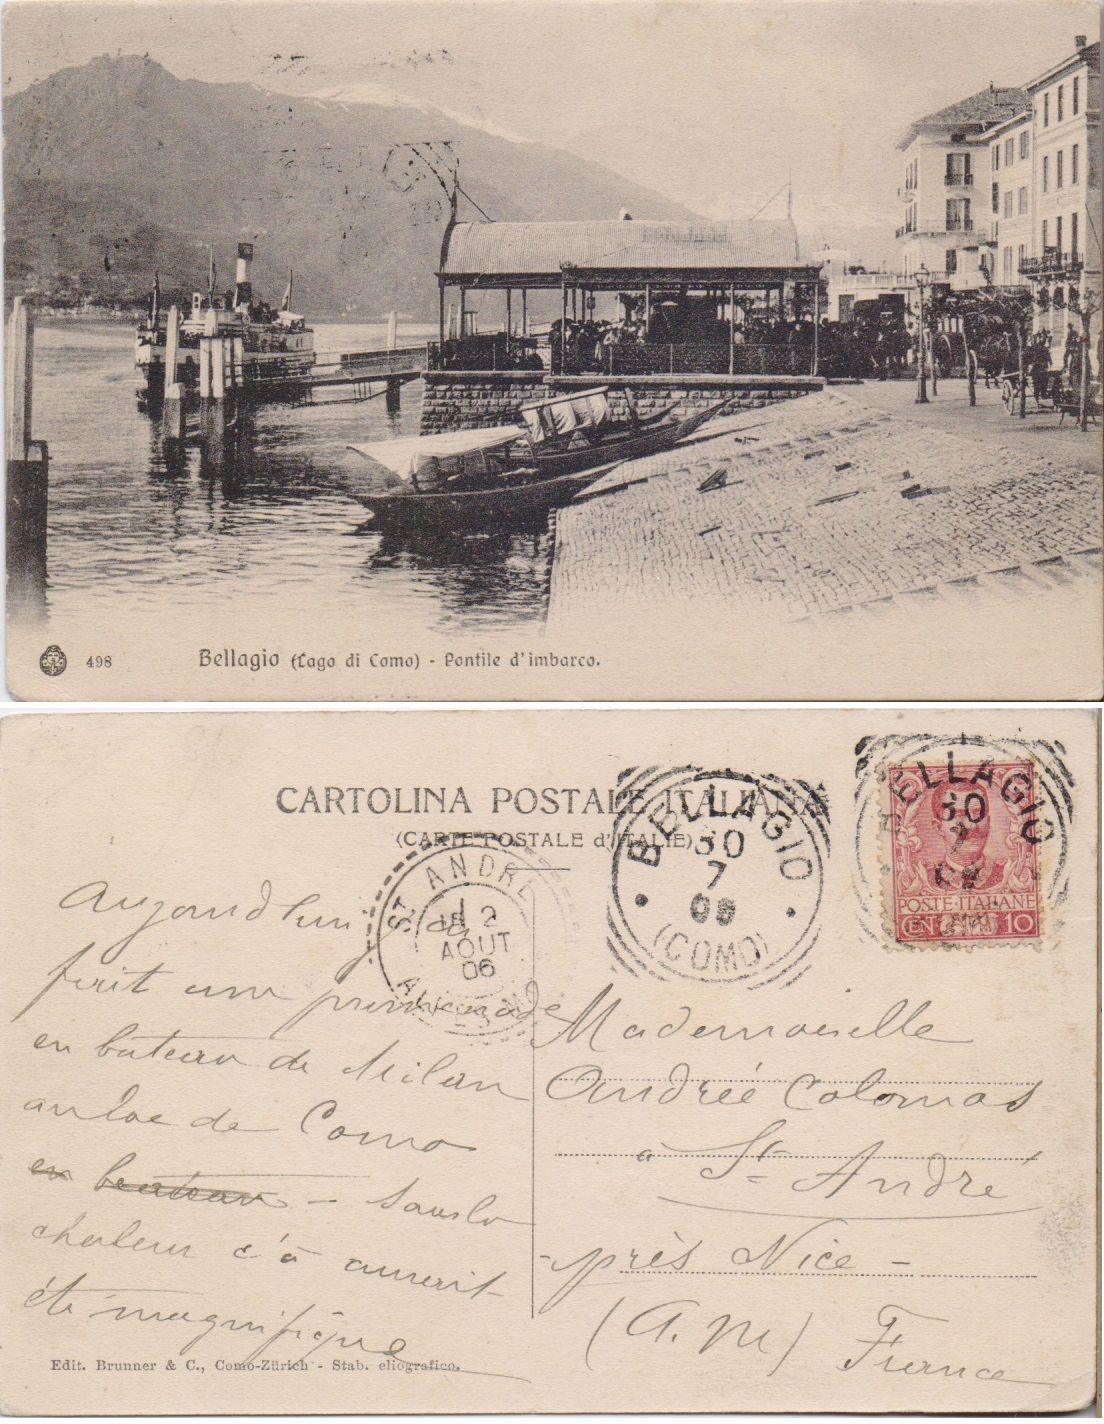 498
Bellagio (Lago di Como) - Pontile d'imbarco.
CARTOLINA POSTALE ITALIANA
(CARTE POSTALE d'ITALIE)
BELLAGIO
30
7
(COMO)
BELLAGIO
30
7
POSTE·ITALIANE
CENT 10
ST ANDRE
2
AOUT
06
Aujourd'hui j'ai
fait une promenade
en bateau de Milan
au lac de Como
en bateau - Sans la
chaleur c'à aurait
été magnifique
Mademoiselle
Andrée Colomas
à St André
- près Nice -
(A. M) France
Edit. Brunner & C., Como-Zürich - Stab. eliografico.